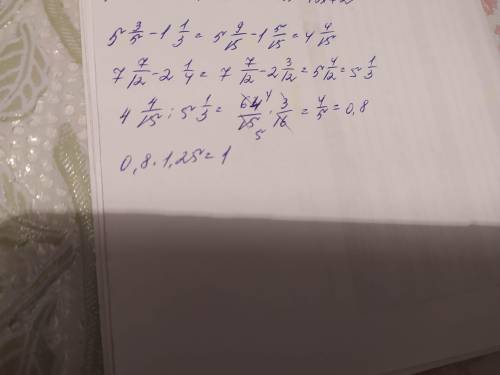 5 3/5 - 1 1/3 = 5 9/15 - 1 5/15 = 4 4/15
7 7/12 - 2 1/4 = 7 7/12 - 2 3/12 = 5 4/12 = 5 1/3
4 4/15 : 5 1/3 = 64 4/15 5 · 3/16 = 4/5 = 0,8
0,8 · 1,25 = 1